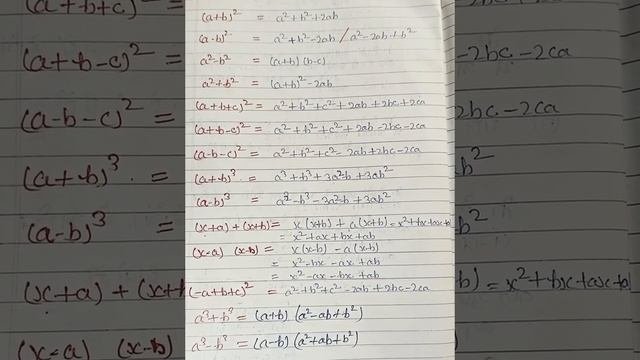 (a+b)² = a²+b²+2ab
(a-b)² = a²+b²-2ab / a²-2ab+b²
a²-b² = (a+b) (b-c)
a²+b² = (a+b)²-2ab
(a+b+c)² = a²+b²+c²+2ab+2bc+2ca
(a+b-c)² = a²+b²+c²+2ab-2bc-2ca
(a-b-c)² = a²+b²+c²-2ab+2bc-2ca
(a+b)³ = a³+b³+3a²b+3ab²
(a-b)³ = a³-b³-3a²b+3ab²
(x+a)+(x+b) = x(x+b)+a(x+b) = x²+bx+ax+ab
= x²+ax+bx+ab
(x-a) (x-b) = x(x-b)-a(x-b)
= x²-bx-ax+ab
= x²-ax-bx+ab
(-a+b+c)² = a²+b²+c²-2ab+2bc-2ca
a³+b³ = (a+b) (a²-ab+b²)
a³-b³ = (a-b) (a²+ab+b²)
(a+b+c)² =
(a+b-c)²
(a-b-c)² =
(a+b)³ =
(a-b)³ =
(x+a)+(x+b
(x-a) (x-b)
-2bc-2ca
2bc-2ca
b²
b²
b) = x²+bx+ax+ab